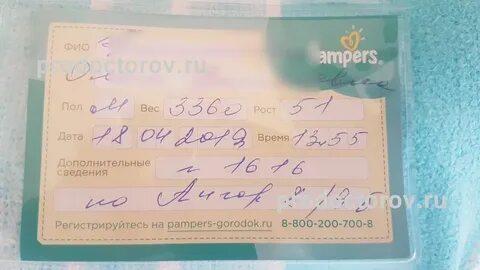 ФИО
Pampers.
prodoctorov.ru
Пол М Вес 3360 Рост 51
Дата 18 04 2019 Время 13.55
Дополнительные сведения г 1616
по Апгар 8/9 б
prodoctorov.ru
Регистрируйтесь на pampers-gorodok.ru 8-800-200-700-8